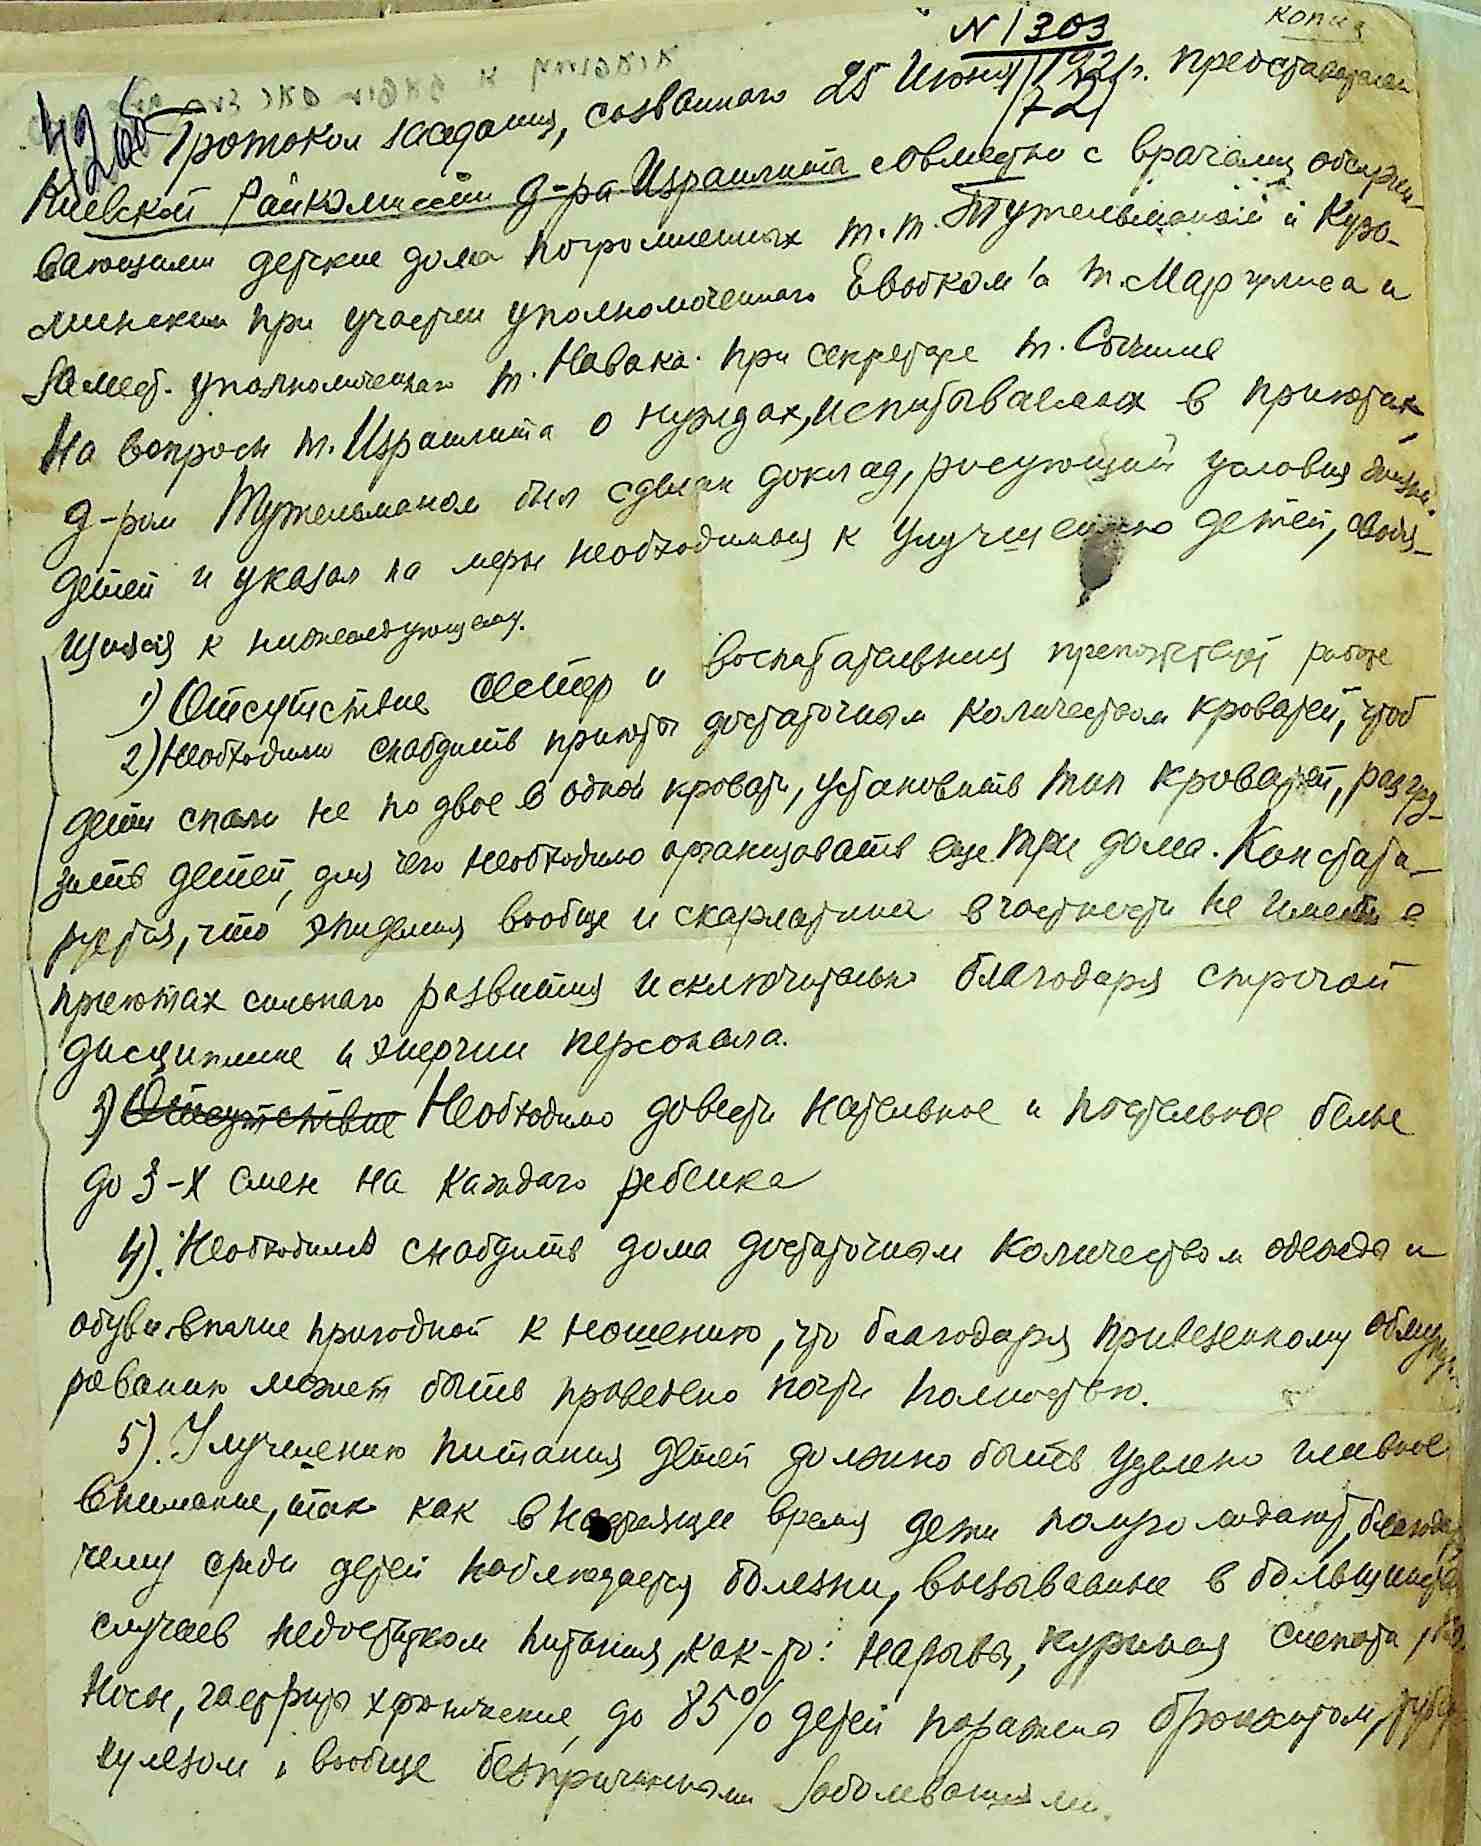 копия
N 1303
Протокол заседания, созванного 25 Июня 1921 г. представителем
Киевской Райкомиссии д-ра Израилита совместно с врачами обслужи-
вающими детские дома погромленных т.т. Тужельманом и Куза-
минским при участии уполномоченного Евобком'а т. Маргулиса и
замест. уполномоченного т. Навака. при секретаре т.
На вопросы т. Израилита о нуждах, испытываемых в приютах,
д-ром Тужельманом был сделан доклад, рисующий условия жизни
детей и указал на меры необходимыя к улучшению детей, своdя-
щияся к нижеследующему.
1) Отсутствие сестер и воспитательниц препятствует работе
2) Необходимо снабдить приюты достаточным количеством кроватей, чтоб
дети спали не по двое в одной кровати, установить тип кроватей, разгру-
зить детей, для чего необходимо организовать еще три дома. Констати-
руется, что эпидемия вообще и скарлатина в частности не имеет в
приютах сильного развития исключительно благодаря строгой
дисциплине и энергии персонала.
3) Отсутствие Необходимо довести нательное и постельное белье
до 3-х смен на каждого ребенка
4). Необходимо снабдить дома достаточным количеством одежды и
обуви вполне пригодной к ношению, что благодаря привезенному обмунди-
рованию может быть проведено почти полностью.
5). Улучшению питания детей должно быть уделено главное
внимание, так как в настоящее время дети полуголодают, благода
чему среди детей наблюдается болезни, вызываемые в большинстве
случаев недостатком питания, как-то: нарывы, куриная слепота,
носы, гастриты хронические, до 85% детей поражены бронхитом, тубер
кулезом и вообще безпричинными заболеваниями.